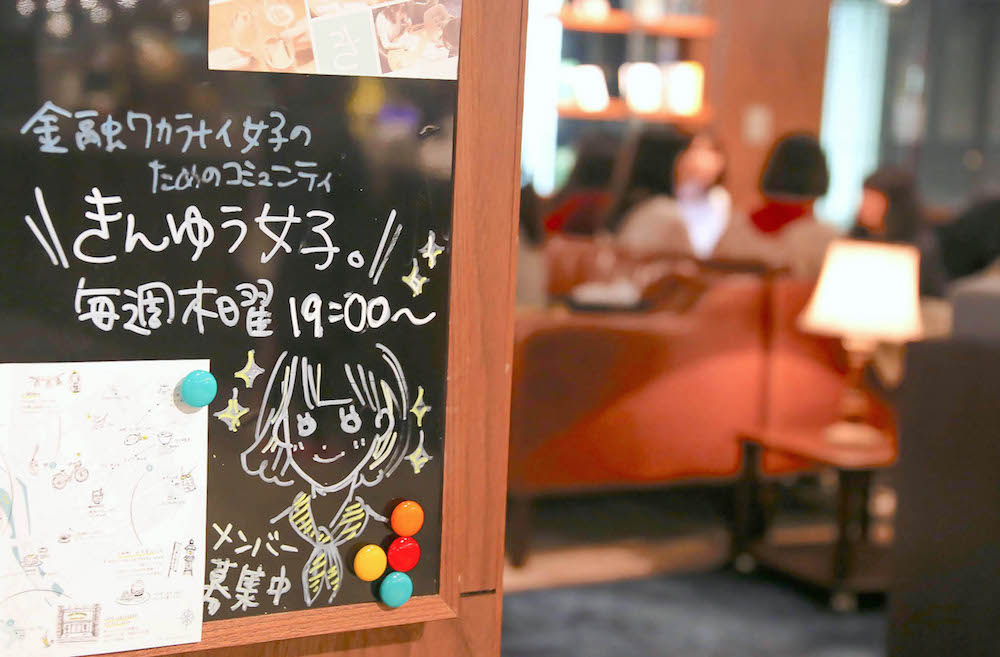 金融ワカラナイ女子の
ためのコミュニティ
\\きんゆう女子。//
毎週木曜 19:00〜
メンバー
募集中